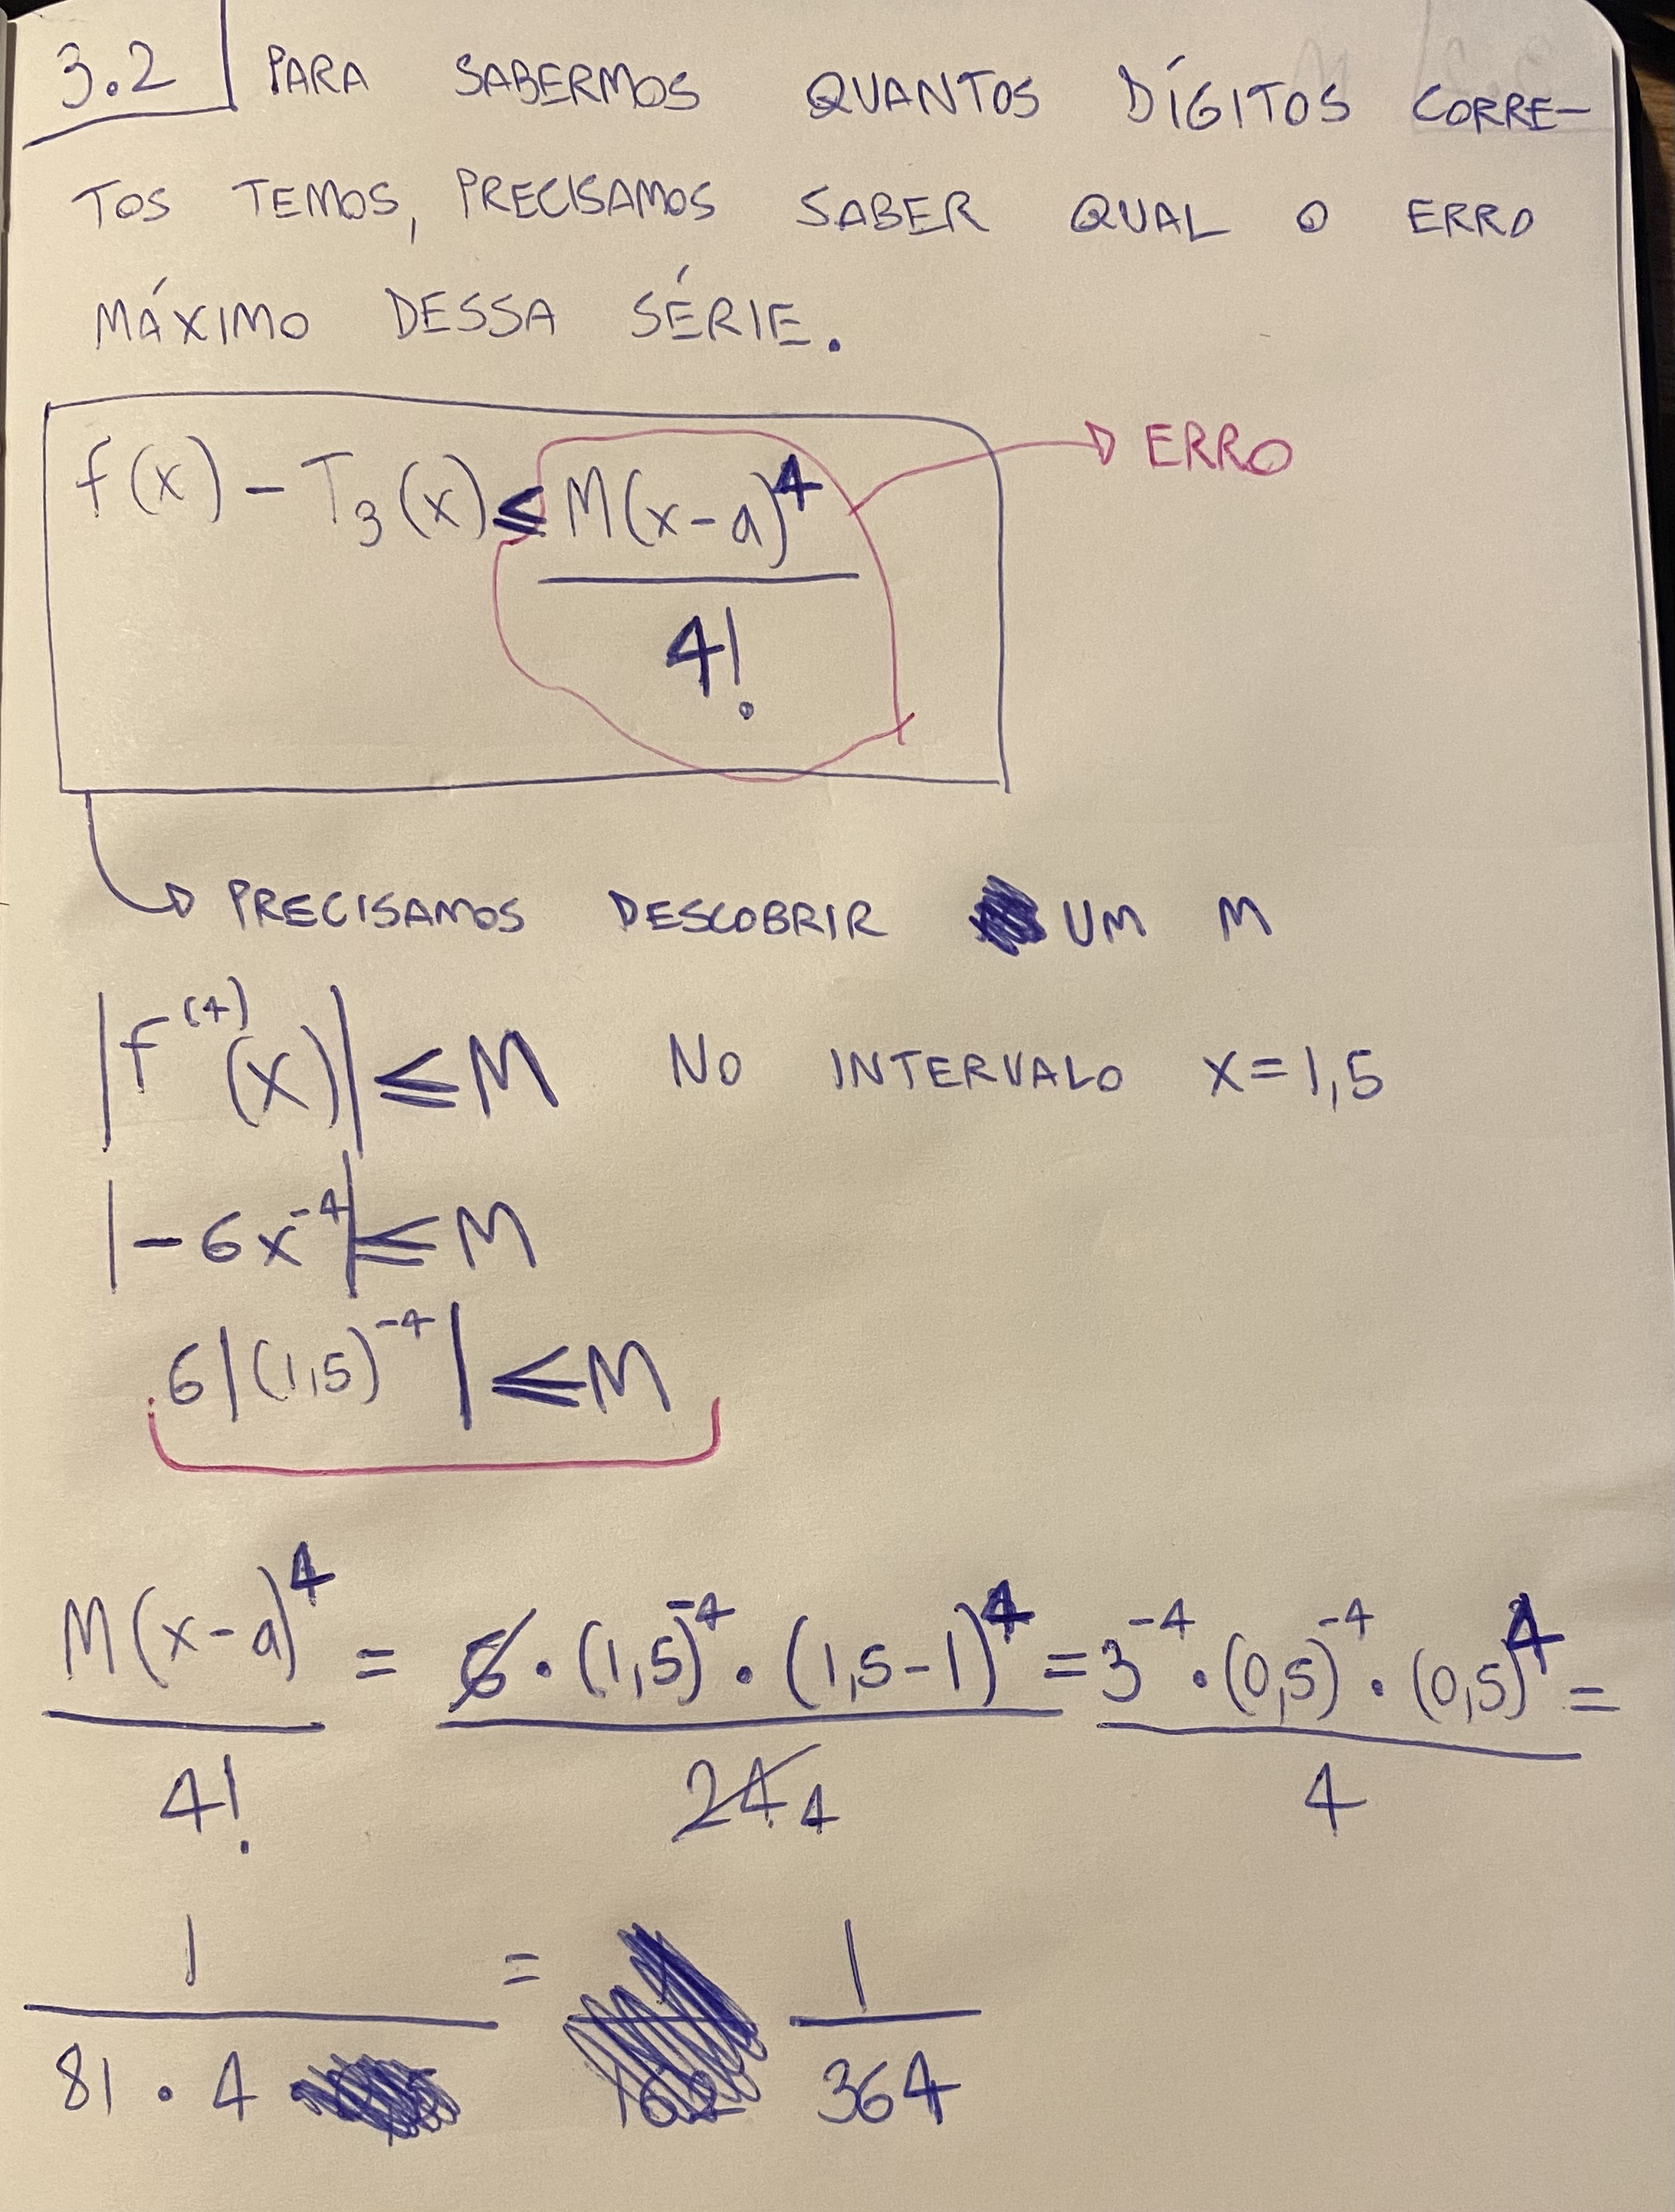 3.2 PARA SABERMOS QUANTOS DÍGITOS CORRE-
TOS TEMOS, PRECISAMOS SABER QUAL O ERRO
MÁXIMO DESSA SÉRIE.
f(x) - T₃(x) ≤ M(x-a)⁴ / 4! → ERRO
→ PRECISAMOS DESCOBRIR UM M
|f⁽⁴⁾(x)| ≤ M NO INTERVALO x=1,5
|-6x⁻⁴| ≤ M
6|(1,5)⁻⁴| ≤ M
M(x-a)⁴ / 4! = 6·(1,5)⁻⁴·(1,5-1)⁴ / 24 4 = 3⁻⁴·(0,5)⁻⁴·(0,5)⁴ / 4 =
1 / 81·4 = 1 / 364